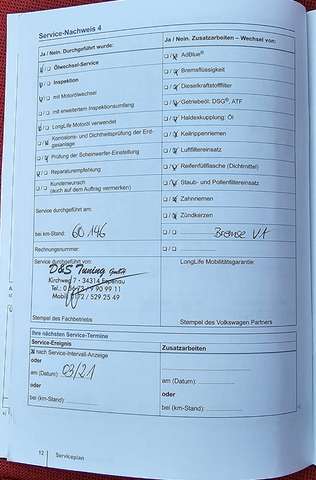 Service-Nachweis 4
Ja / Nein. Durchgeführt wurde:
Ölwechsel-Service
Inspektion
mit Motorölwechsel
mit erweitertem Inspektionsumfang
LongLife Motoröl verwendet
Korrosions- und Dichtheitsprüfung der Erdgasanlage
Prüfung der Scheinwerfer-Einstellung
Reparaturempfehlung
Kundenwunsch
(auch auf dem Auftrag vermerken)
Service durchgeführt am:
bei km-Stand: 60 146
Rechnungsnummer:
Service durchgeführt von:
D&S Tuning GmbH
Kirchweg 7 - 34314 Espenau
Tel.: 0 56 73 / 9 90 99 11
Mobil: 0172 / 529 25 49
Stempel des Fachbetriebs
Ja / Nein. Zusatzarbeiten – Wechsel von:
AdBlue®
Bremsflüssigkeit
Dieselkraftstofffilter
Getriebeöl: DSG®, ATF
Haldexkupplung: Öl
Keilrippenriemen
Luftfiltereinsatz
Reifenfüllflasche (Dichtmittel)
Staub- und Pollenfiltereinsatz
Zahnriemen
Zündkerzen
Bremse VA
LongLife Mobilitätsgarantie:
Stempel des Volkswagen Partners
Ihre nächsten Service-Termine
Service-Ereignis
nach Service-Intervall-Anzeige
oder
am (Datum): 03/21
oder
bei (km-Stand):
Zusatzarbeiten
am (Datum):
oder
bei (km-Stand):
12 Serviceplan